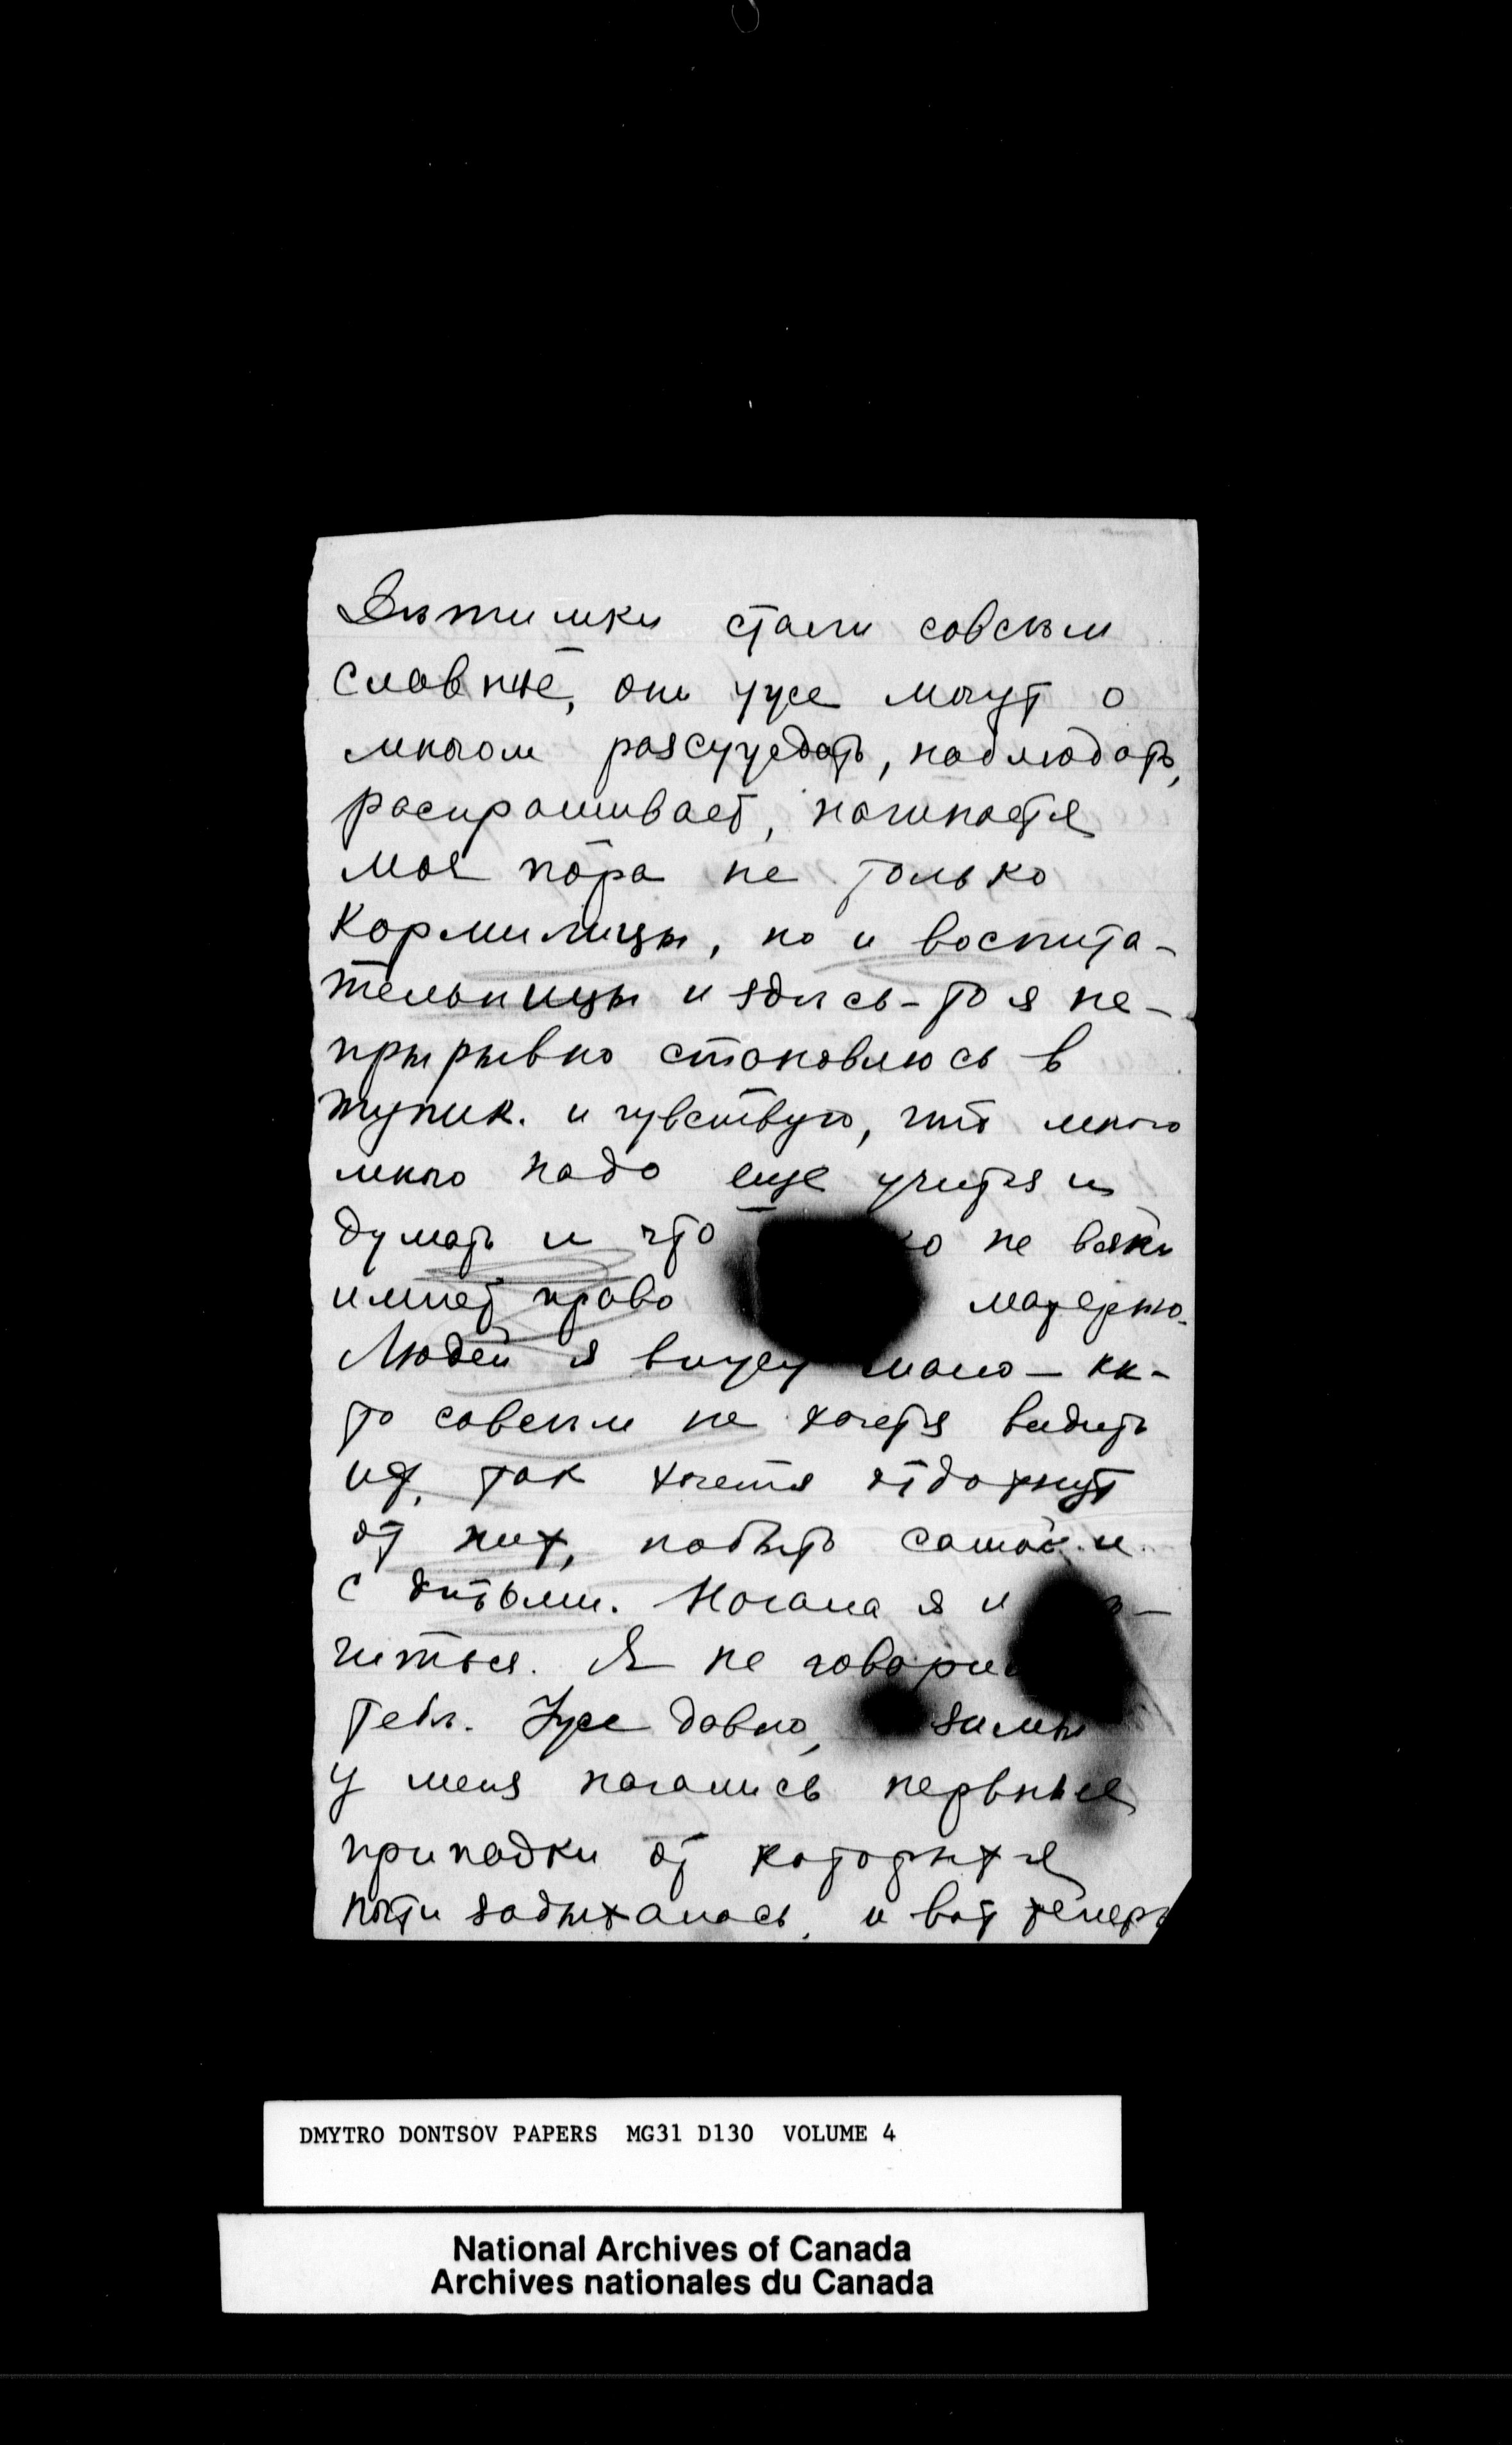 Дѣтишки стали совсѣм
славные, они уже могут о
многом разсуждать, наблюдать,
распрашивает, начинается
моя пора не только
кормилицы, но и воспита-
тельницы и здѣсь-то я не-
прырывно становлюсь в
тупик. и чувствую, что много
много надо еще учится и
думать и что не всяки
имѣет право матерью.
Людей я вижу мало — кк-
то совсѣм не хочется видить
их, так хочется отдохнут
от них, побыть самой и
с дѣтьми. Начала я и
читься. Я не говорила
тебѣ. Уже давно, зимы
у меня начались нервные
припадки от которых я
почти задыхалась, и вот теперь
DMYTRO DONTSOV PAPERS MG31 D130 VOLUME 4
National Archives of Canada
Archives nationales du Canada